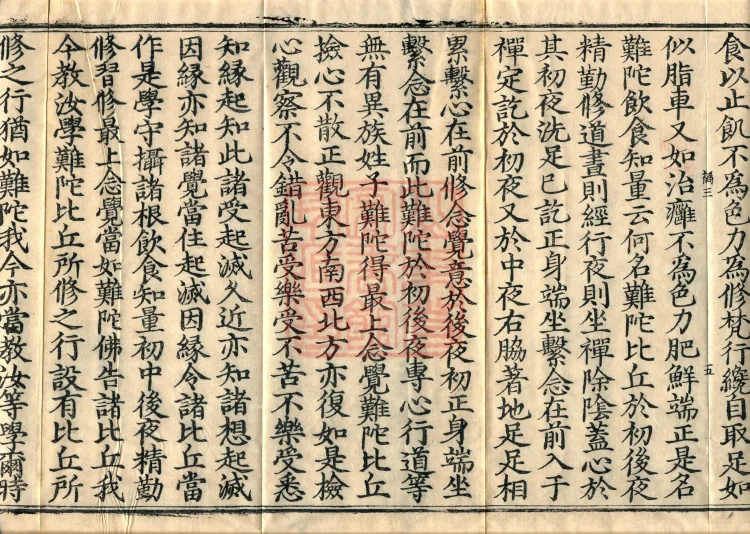 食以止飢不為色力為修梵行纔自取足如
似脂車又如治癰不為色力肥鮮端正是名
難陀飲食知量云何名難陀比丘於初後夜
精勤修道晝則經行夜則坐禪除陰蓋心於
其初夜洗足已訖正身端坐繫念在前入于
禪定訖於初夜又於中夜右脇著地足足相
累繫心在前修念覺意於後夜初正身端坐
繫念在前而此難陀於初後夜專心行道等
無有異族姓子難陀得最上念覺難陀比丘
撿心不散正觀東方南西北方亦復如是檢
心觀察不令錯亂苦受樂受不苦不樂受悉
知緣起知此諸受起滅久近亦知諸想起滅
因緣亦知諸覺當住起滅因緣令諸比丘當
作是學守攝諸根飲食知量初中後夜精勤
修習修最上念覺當如難陀佛告諸比丘我
今教汝學難陀比丘所修之行設有比丘所
修之行猶如難陀我今亦當教汝等學爾時
五